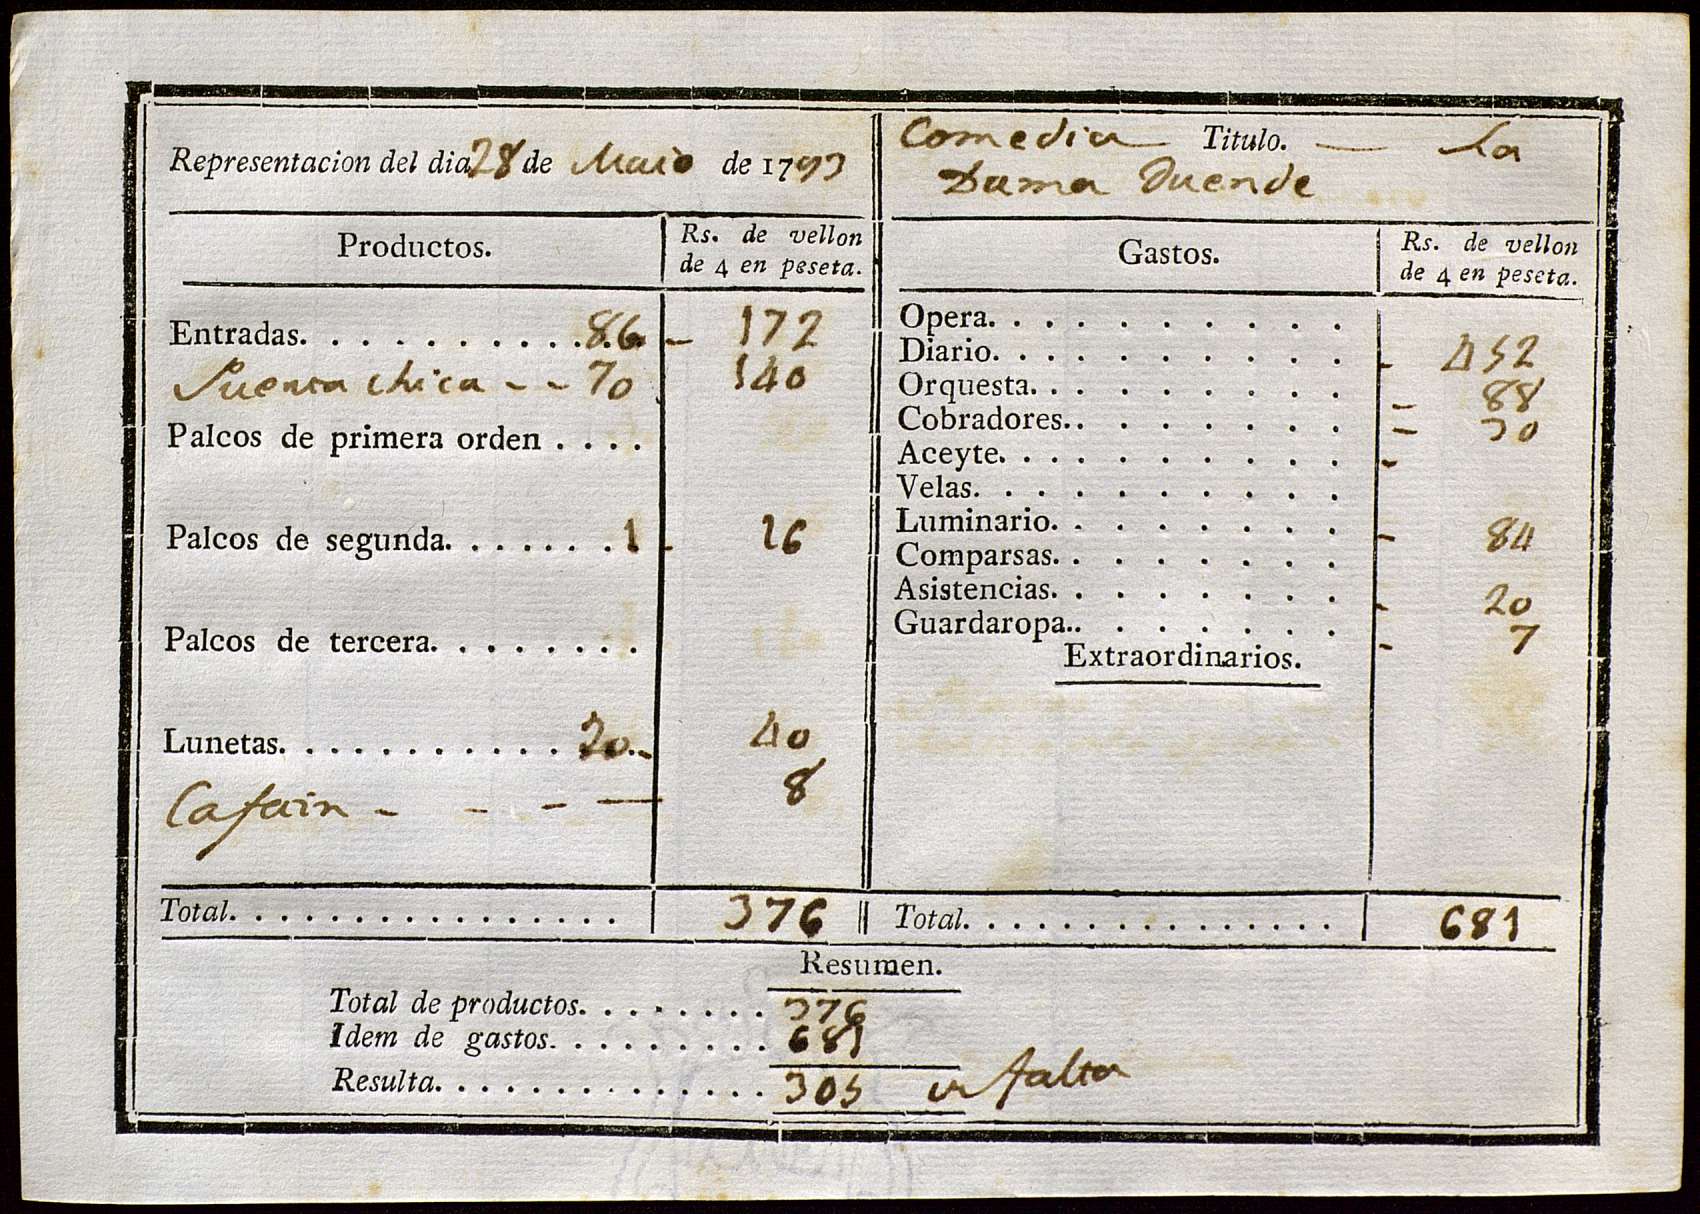 Representacion del dia 28 de Maio de 1793
Productos. Rs. de vellon
de 4 en peseta.
Entradas. . . . . . . . . . . 86. - 172
Puerta chica - - 70 140
Palcos de primera orden . . . .
Palcos de segunda. . . . . . . 1 - 16
Palcos de tercera. . . . . . . .
Lunetas. . . . . . . . . . . . 20. - 40
Cafain - - - — 8
Total. . . . . . . . . . . . . . . . 376
Comedia Titulo. — La
Dama Duende
Gastos. Rs. de vellon
de 4 en peseta.
Opera. . . . . . . . . .
Diario. . . . . . . . . . - 452
Orquesta. . . . . . . . . - 88
Cobradores.. . . . . . . - 30
Aceyte. . . . . . . . . . -
Velas. . . . . . . . . .
Luminario. . . . . . . . - 84
Comparsas. . . . . . . .
Asistencias. . . . . . . . - 20
Guardaropa.. . . . . . . - 7
Extraordinarios.
Total. . . . . . . . . . . . . . . 681
Resumen.
Total de productos. . . . . . . . 376
Idem de gastos. . . . . . . . . 681
Resulta. . . . . . . . . . . . . . 305 en falta